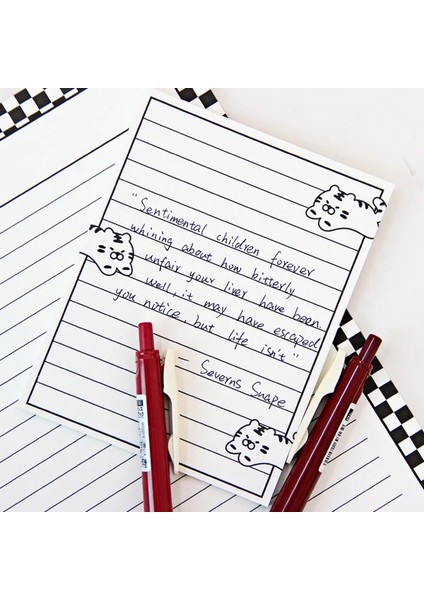 "Sentimental children forever
whining about how bitterly
unfair your liver have been
well, it may have escaped
you notice, but life isn't"
— Severns Snape